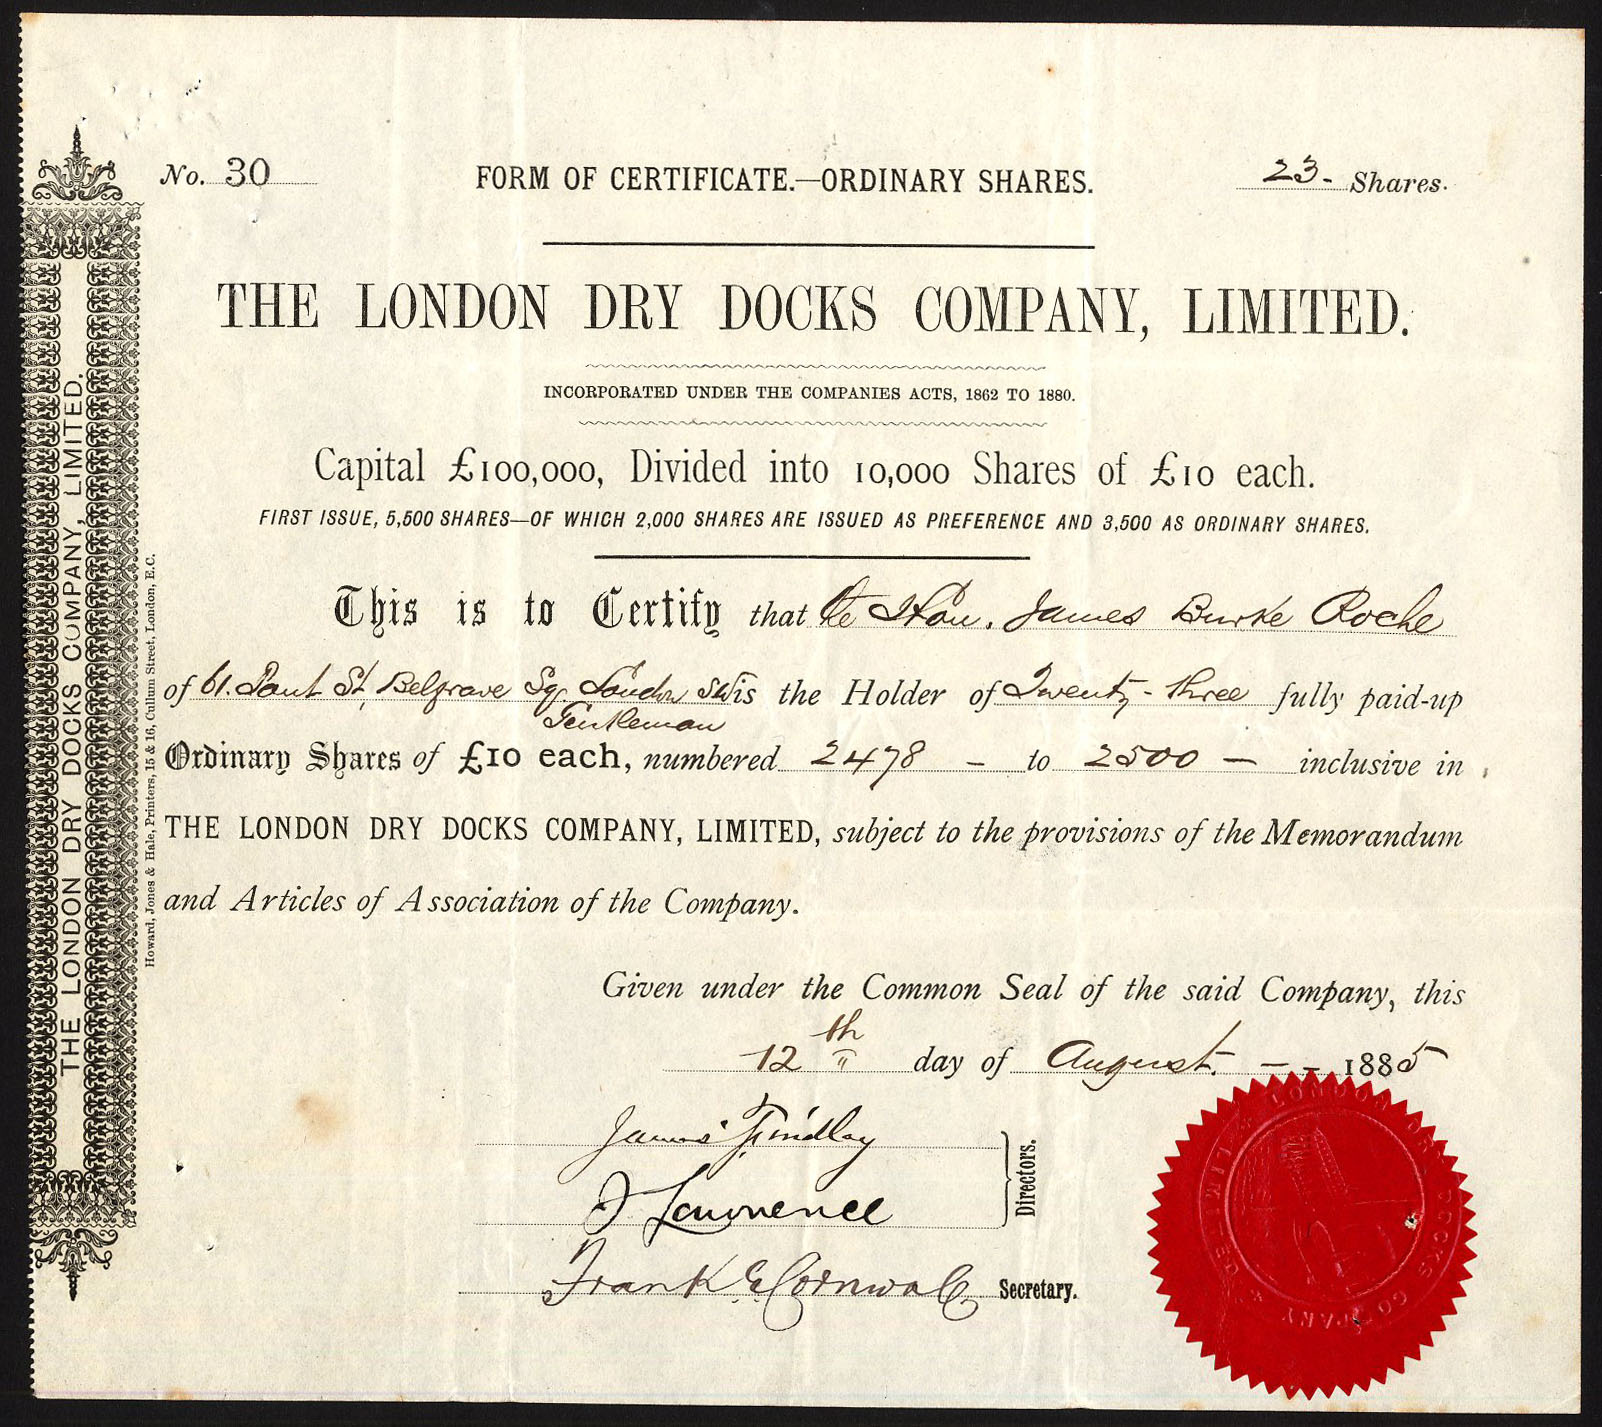 No. 30
FORM OF CERTIFICATE.—ORDINARY SHARES.
23- Shares.
THE LONDON DRY DOCKS COMPANY, LIMITED.
INCORPORATED UNDER THE COMPANIES ACTS, 1862 TO 1880.
Capital £100,000, Divided into 10,000 Shares of £10 each.
FIRST ISSUE, 5,500 SHARES—OF WHICH 2,000 SHARES ARE ISSUED AS PREFERENCE AND 3,500 AS ORDINARY SHARES.
This is to Certify that the Hon. James Burke Roche
of 61. Pont St, Belgrave Sq. London SW is the Holder of Twenty-three fully paid-up
Gentleman
Ordinary Shares of £10 each, numbered 2478 - to 2500 - inclusive in
THE LONDON DRY DOCKS COMPANY, LIMITED, subject to the provisions of the Memorandum
and Articles of Association of the Company.
Given under the Common Seal of the said Company, this
12th day of August. - - 1885
James Findlay
J Lawrence
Directors.
Frank E Cornwall Secretary.
THE LONDON DRY DOCKS COMPANY, LIMITED.
Howard, Jones & Hale, Printers, 15 & 16, Cullum Street, London, E.C.
LONDON DRY DOCKS COMPANY LIMITED